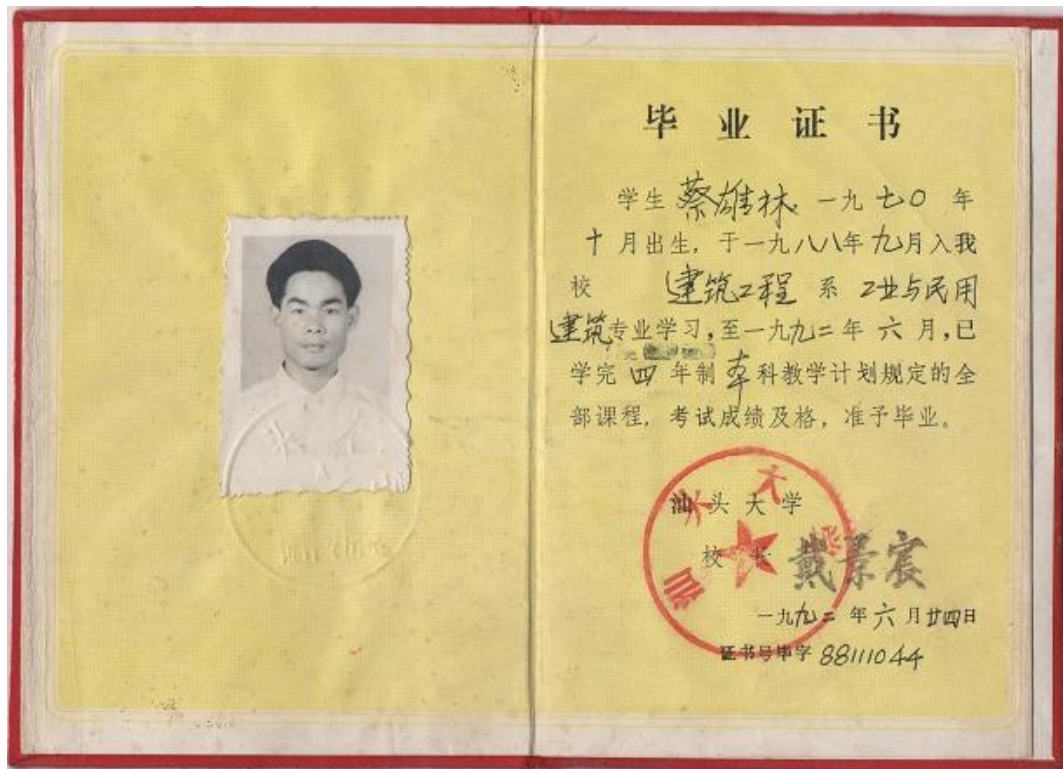 毕业证书
学生 蔡雄林 一九七〇年
十月出生，于一九八八年九月入我
校 建筑工程 系 工业与民用
建筑专业学习，至一九九二年六月，已
学完四年制本科教学计划规定的全
部课程，考试成绩及格，准予毕业。
汕头大学
校长 戴景宸
一九九二年六月廿四日
证书号毕字 88111044
汕头大学